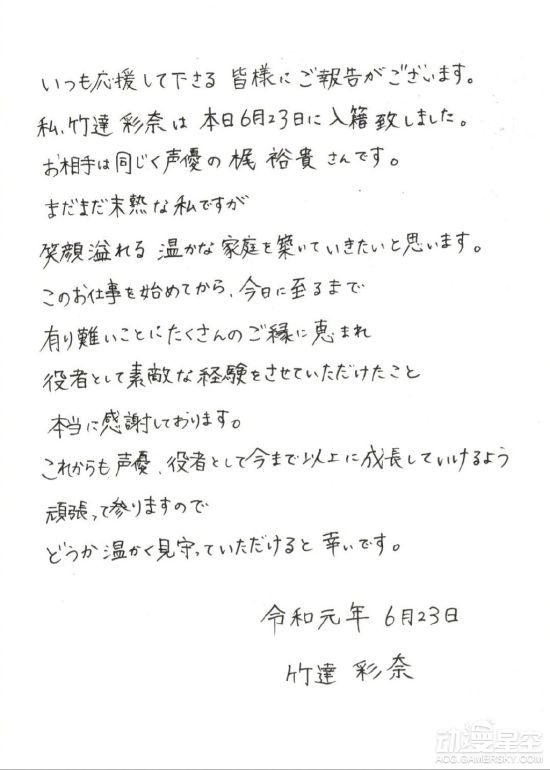 いつも応援して下さる 皆様にご報告がございます。
私、竹達 彩奈は 本日6月23日に 入籍 致しました。
お相手は同じく声優の 梶 裕貴 さんです。
まだまだ未熟な私ですが
笑顔溢れる 温かな 家庭を築いていきたいと思います。
このお仕事を始めてから、今日に至るまで
有り難いことにたくさんのご縁に恵まれ
役者として素敵な経験をさせていただけたこと
本当に感謝しております。
これからも声優、役者として今まで以上に成長していけるよう
頑張って参りますので
どうか温かく見守っていただけると 幸いです。
令和元年 6月23日
竹達 彩奈
动漫星空
ACG.GAMERSKY.COM